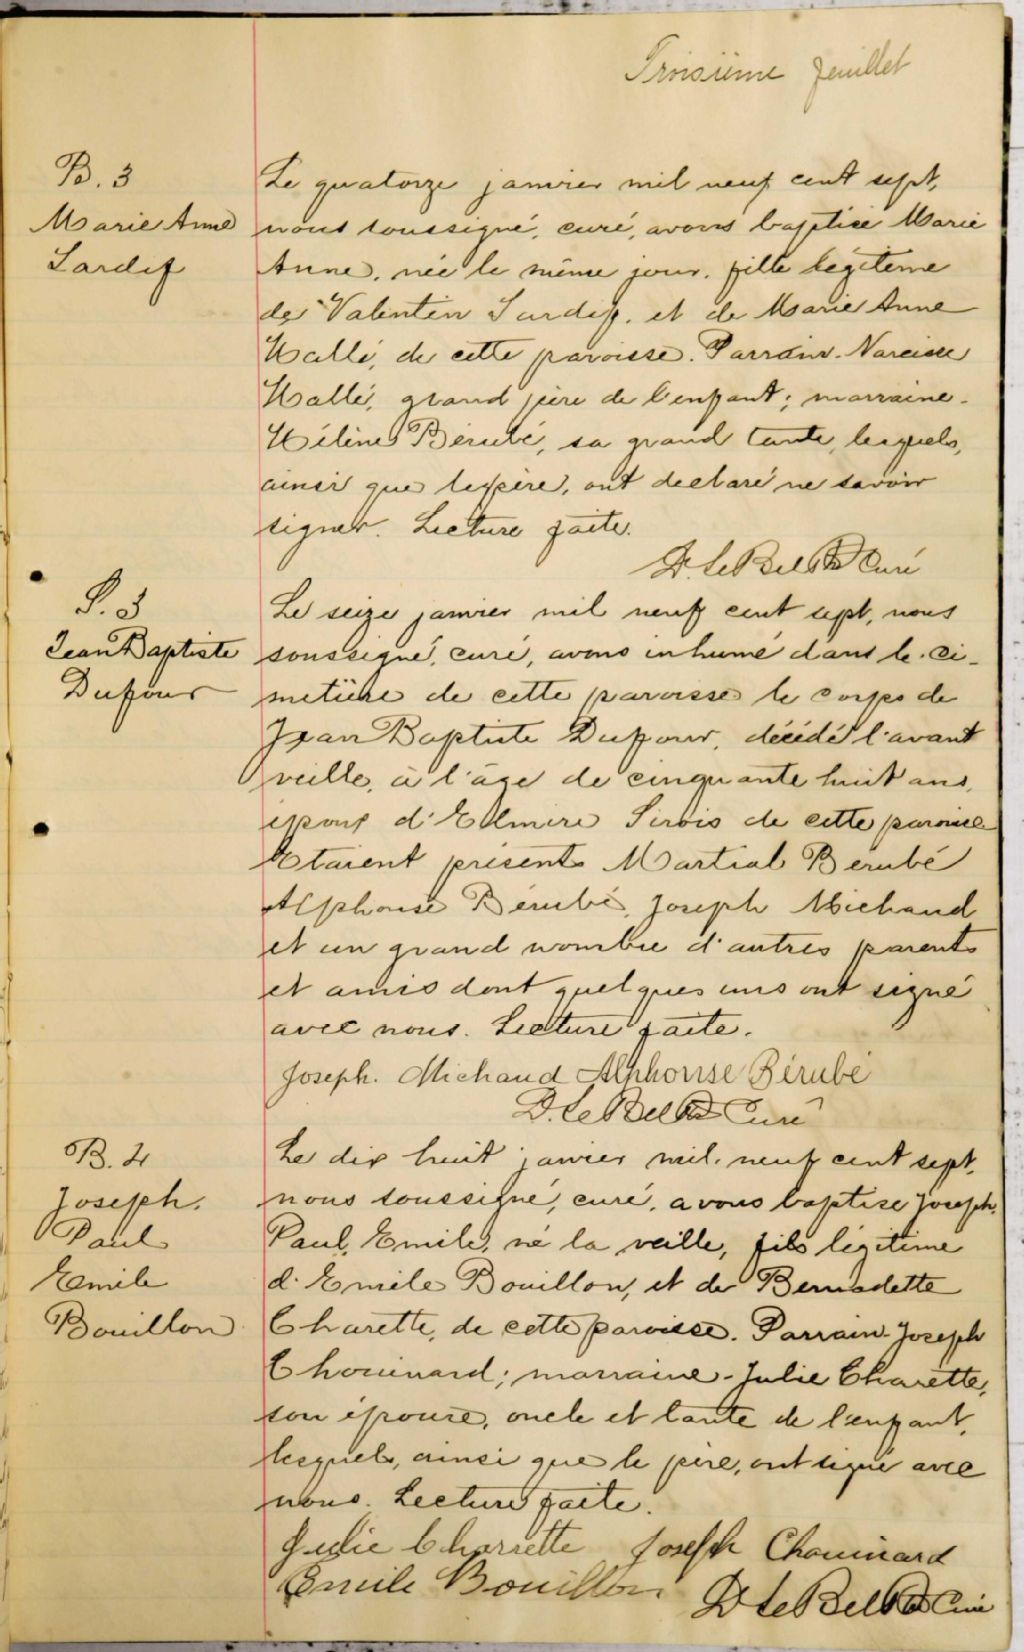 Troisième feuillet
B. 3
Marie Anne
Tardif
Le quatorze janvier mil neuf cent sept,
nous soussigné, curé, avons baptisé Marie
Anne, née le même jour, fille légitime
de Valentin Tardif, et de Marie Anne
Hallé, de cette paroisse. Parrain - Narcisse
Hallé, grand père de l'enfant; marraine -
Hélène Bérubé, sa grand tante, lesquels,
ainsi que le père, ont déclaré ne savoir
signer. Lecture faite.
D. Le Bel Ptre Curé
S. 3
Jean Baptiste
Dufour
Le seize janvier mil neuf cent sept, nous
soussigné, curé, avons inhumé dans le ci-
metière de cette paroisse le corps de
Jean Baptiste Dufour, décédé l'avant
veille, à l'âge de cinquante huit ans,
époux d'Elmire Sirois de cette paroisse
Etaient présents Martial Bérubé
Alphonse Bérubé, Joseph Michaud
et un grand nombre d'autres parents
et amis dont quelques uns ont signé
avec nous. Lecture faite.
Joseph. Michaud Alphonse Bérubé
D. Le Bel Ptre Curé
B. 4
Joseph.
Paul
Emile
Bouillon
Le dix huit janvier mil neuf cent sept,
nous soussigné, curé, avons baptisé Joseph,
Paul, Emile, né la veille, fils légitime
d'Emile Bouillon, et de Bernadette
Charette, de cette paroisse. Parrain - Joseph
Chouinard; marraine - Julie Charette,
son épouse, oncle et tante de l'enfant,
lesquels, ainsi que le père, ont signé avec
nous. Lecture faite.
Julie Charrette Joseph Chouinard
Emile Bouillon D Le Bel Ptre Curé